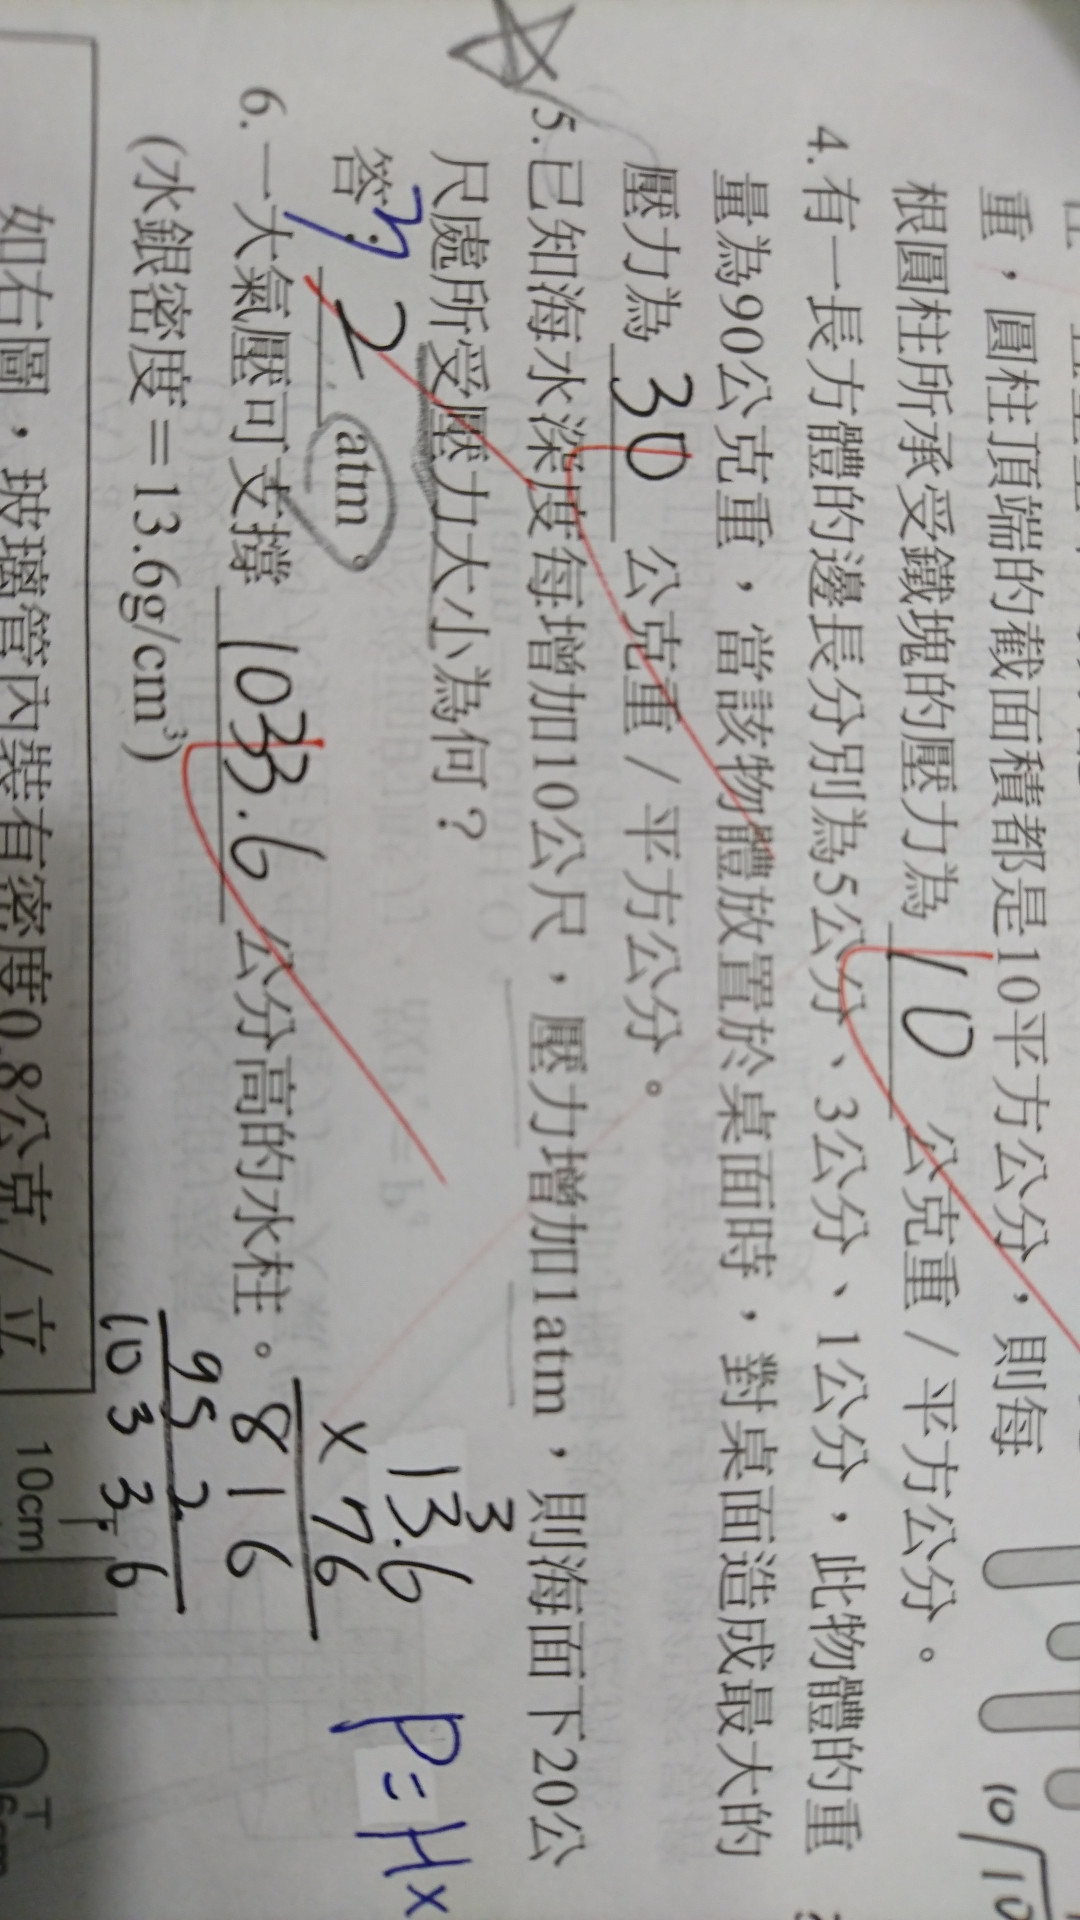 重，圓柱頂端的截面積都是10平方公分，則每
根圓柱所承受鐵塊的壓力為 10 公克重／平方公分。
4.有一長方體的邊長分別為5公分、3公分、1公分，此物體的重
量為90公克重，當該物體放置於桌面時，對桌面造成最大的
壓力為 30 公克重／平方公分。
5.已知海水深度每增加10公尺，壓力增加1atm，則海面下20公
尺處所受壓力大小為何？
答：3 2 atm。
6.一大氣壓可支撐 1033.6 公分高的水柱。
(水銀密度＝13.6g/cm³)
3
13.6
× 76
816
952
1033.6
P=H×
如右圖，玻璃管內裝有密度0.8公克／立
10cm